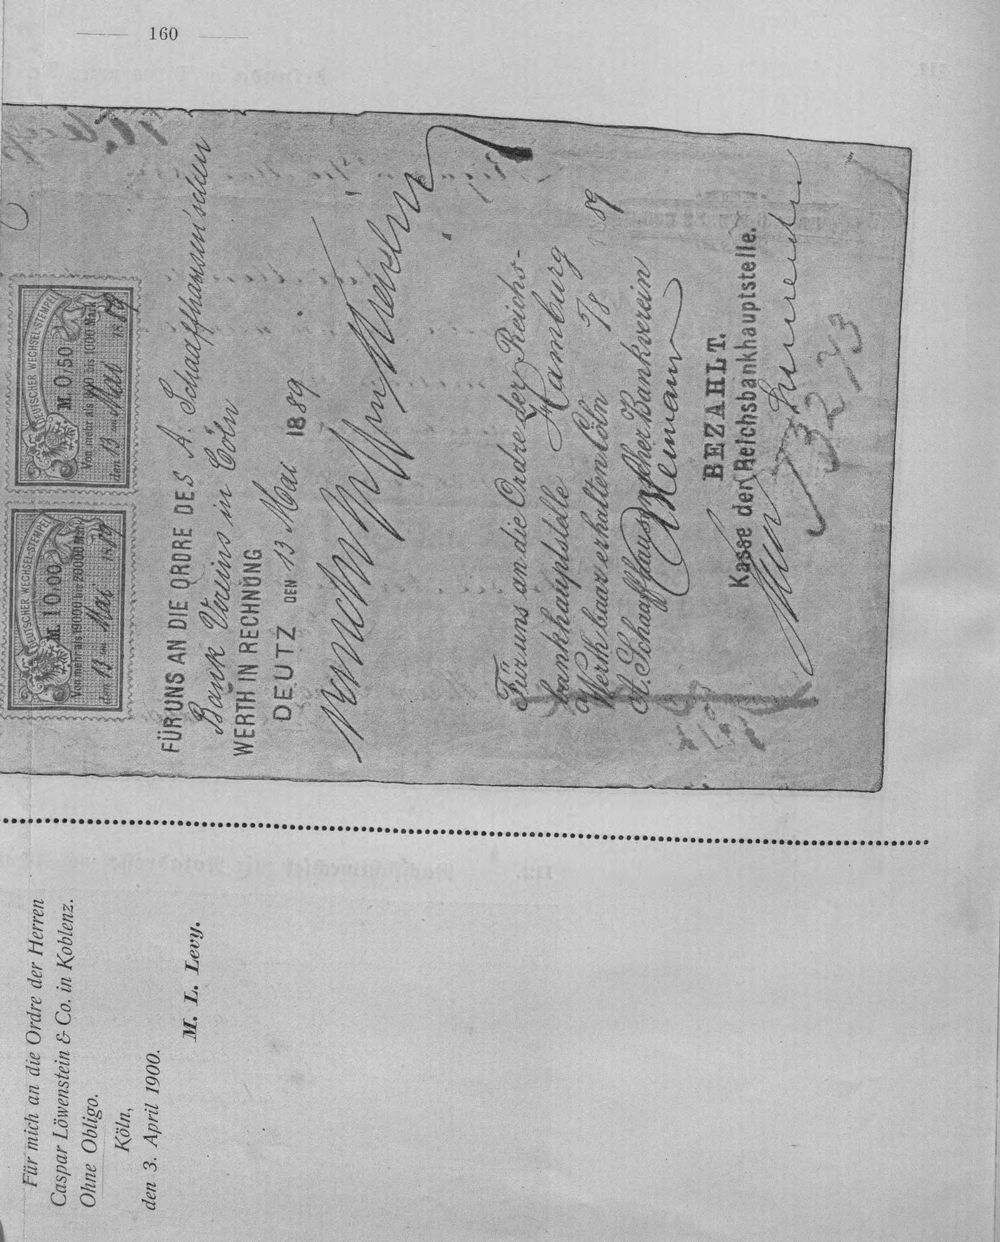 160
DEUTSCHER WECHSEL-STEMPEL
M. 10,00
Von mehr als 19000 bis 20000 Mark
den 13 ten Mai 1889
DEUTSCHER WECHSEL-STEMPEL
M. 0,50
bis 1000 Mark
den 13 ten Mai 1889
FÜR UNS AN DIE ORDRE DES A. Schaaffhausen'schen
Bank Vereins in Cöln
WERTH IN RECHNUNG
DEUTZ DEN 13 Mai 1889
Für uns an die Ordre der Reichs-
bankhauptstelle Hamburg
Werth baar erhalten Cöln 7/8 89
A. Schaaffhausen'scher Bankverein
BEZAHLT.
Kasse der Reichsbankhauptstelle.
3273
Für mich an die Ordre der Herren
Caspar Löwenstein & Co. in Koblenz.
Ohne Obligo.
Köln,
den 3. April 1900.
M. L. Levy.